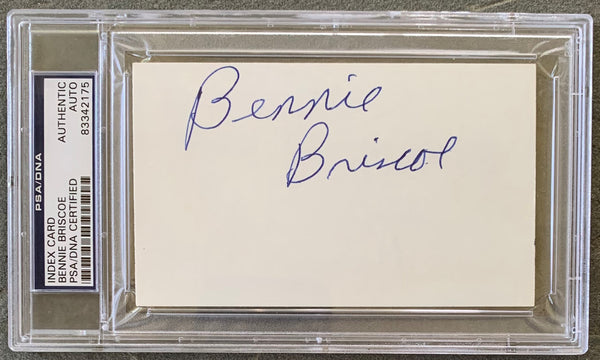 PSA/DNA
INDEX CARD
BENNIE BRISCOE
PSA/DNA CERTIFIED
AUTHENTIC
AUTO
83342175
Bennie
Briscoe